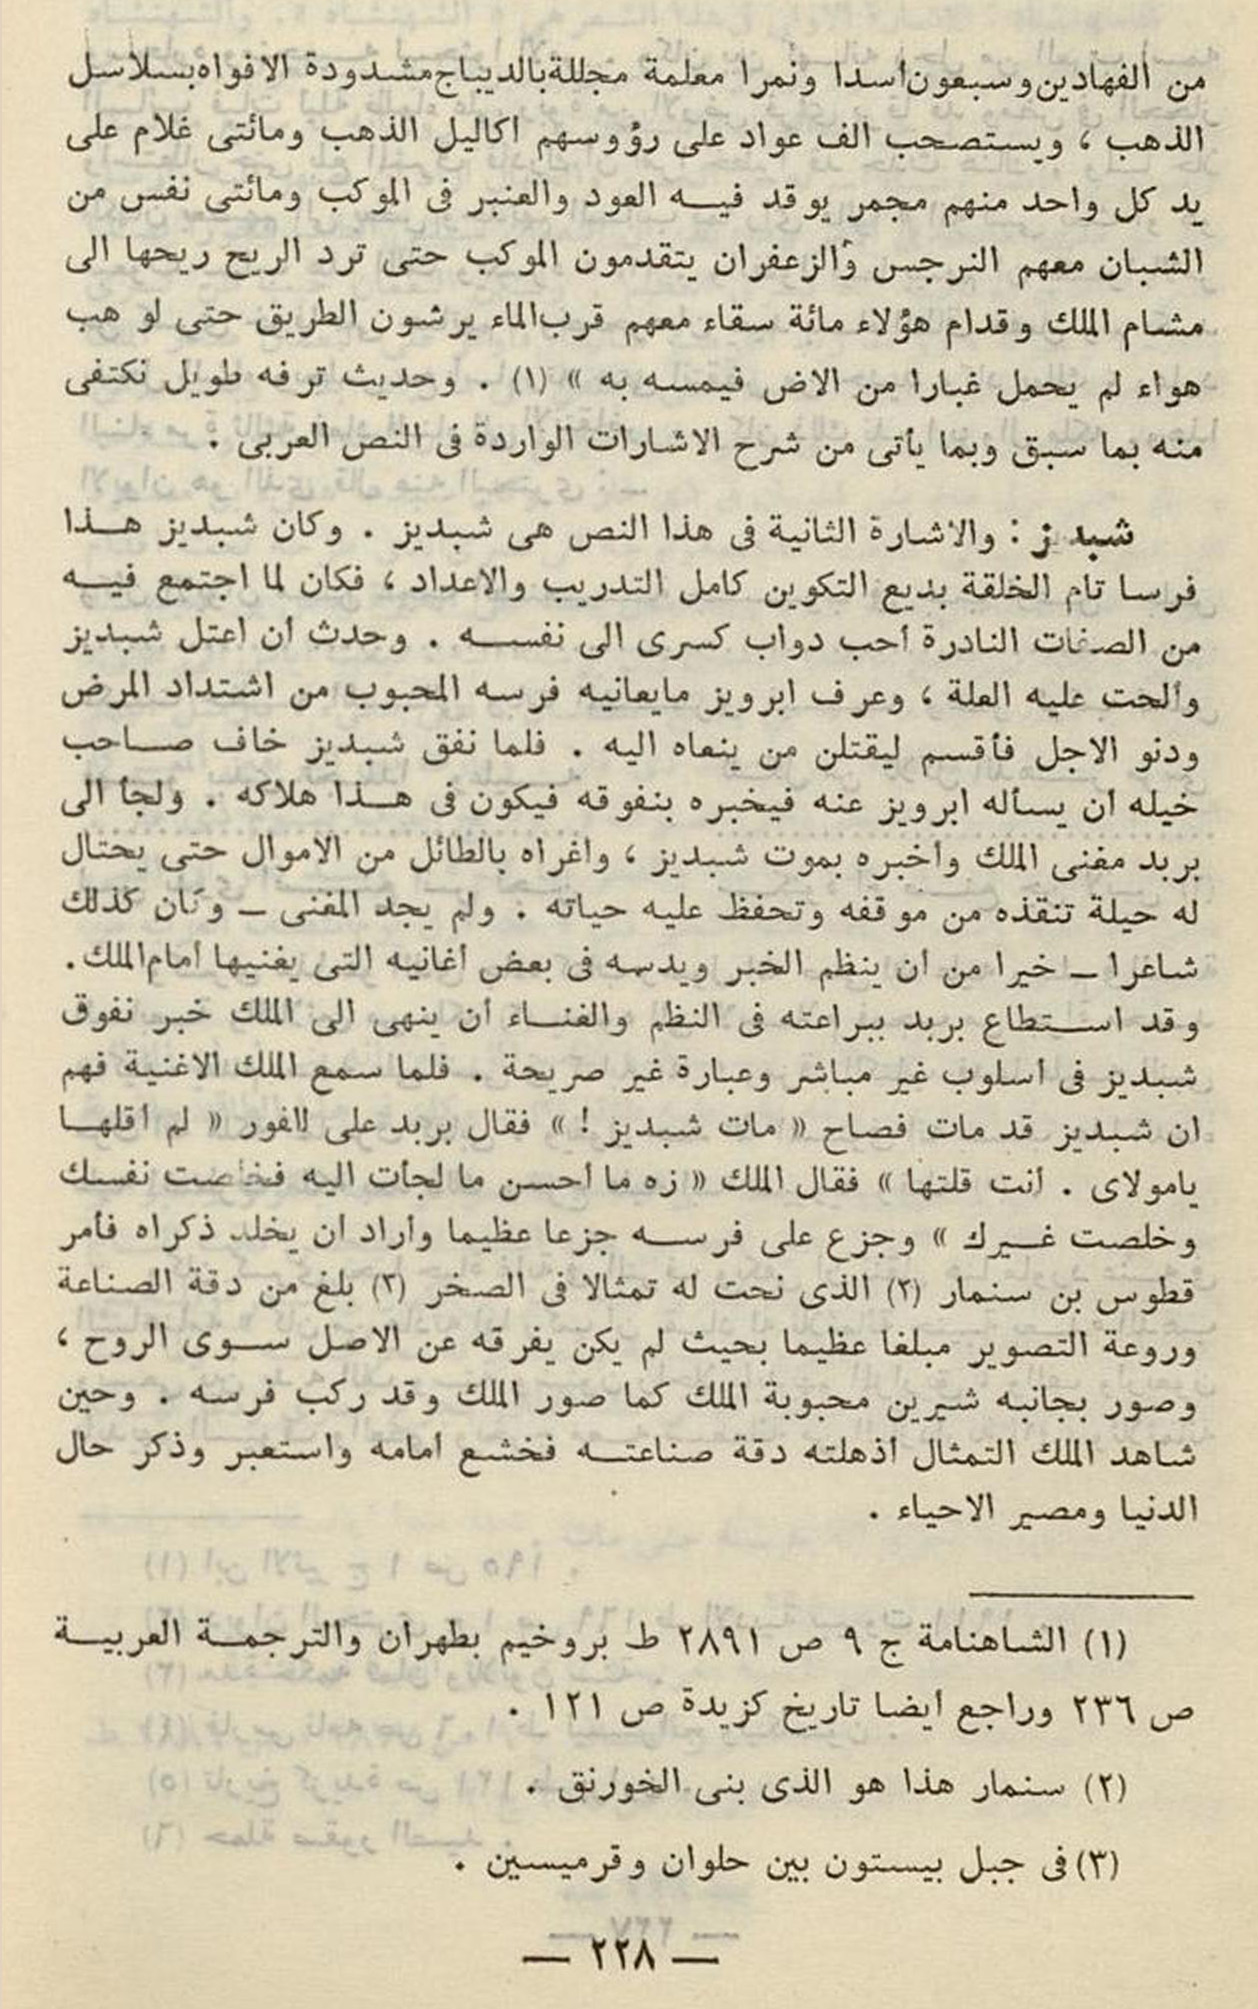 من الفهادين وسبعون أسدا ونمرا معلمة مجللة بالديباج مشدودة الافواه بسلاسل
الذهب ، ويستصحب الف عواد على رؤوسهم اكاليل الذهب ومائتى غلام على
يد كل واحد منهم مجمر يوقد فيه العود والعنبر فى الموكب ومائتى نفس من
الشبان معهم النرجس والزعفران يتقدمون الموكب حتى ترد الريح ريحها الى
مشام الملك وقدام هؤلاء مائة سقاء معهم قرب الماء يرشون الطريق حتى لو هب
هواء لم يحمل غبارا من الاض فيمسه به » (١) . وحديث ترفه طويل نكتفى
منه بما سبق وبما يأتى من شرح الاشارات الواردة فى النص العربى .
شبديز : والاشارة الثانية فى هذا النص هى شبديز . وكان شبديز هذا
فرسا تام الخلقة بديع التكوين كامل التدريب والاعداد ، فكان لما اجتمع فيه
من الصفات النادرة أحب دواب كسرى الى نفسه . وحدث أن اعتل شبديز
وألحت عليه العلة ، وعرف ابرويز مايعانيه فرسه المحبوب من اشتداد المرض
ودنو الاجل فأقسم ليقتلن من ينعاه اليه . فلما نفق شبديز خاف صاحب
خيله أن يسأله ابرويز عنه فيخبره بنفوقه فيكون فى هذا هلاكه . ولجأ الى
بربد مغنى الملك وأخبره بموت شبديز ، وأغراه بالطائل من الاموال حتى يحتال
له حيلة تنقذه من موقفه وتحفظ عليه حياته . ولم يجد المغنى – وكان كذلك
شاعرا – خيرا من أن ينظم الخبر ويدسه فى بعض أغانيه التى يغنيها أمام الملك .
وقد استطاع بربد ببراعته فى النظم والغناء أن ينهى الى الملك خبر نفوق
شبديز فى أسلوب غير مباشر وعبارة غير صريحة . فلما سمع الملك الاغنية فهم
ان شبديز قد مات فصاح « مات شبديز ! » فقال بربد على الفور « لم أقلها
يامولاى . أنت قلتها » فقال الملك « زه ما أحسن ما لجأت اليه فخلصت نفسك
وخلصت غيرك » وجزع على فرسه جزعا عظيما وأراد أن يخلد ذكراه فأمر
قطوس بن سنمار (٢) الذى نحت له تمثالا فى الصخر (٣) بلغ من دقة الصناعة
وروعة التصوير مبلغا عظيما بحيث لم يكن يفرقه عن الاصل سوى الروح ،
وصور بجانبه شيرين محبوبة الملك كما صور الملك وقد ركب فرسه . وحين
شاهد الملك التمثال أذهلته دقة صناعته فخشع أمامه واستعبر وذكر حال
الدنيا ومصير الاحياء .
(١) الشاهنامة ج ٩ ص ٢٨٩١ ط بروخيم بطهران والترجمة العربية
ص ٢٣٦ وراجع أيضا تاريخ كزيدة ص ١٢١ .
(٢) سنمار هذا هو الذى بنى الخورنق .
(٣) فى جبل بيستون بين حلوان وقرميسين .
— ٢٢٨ —